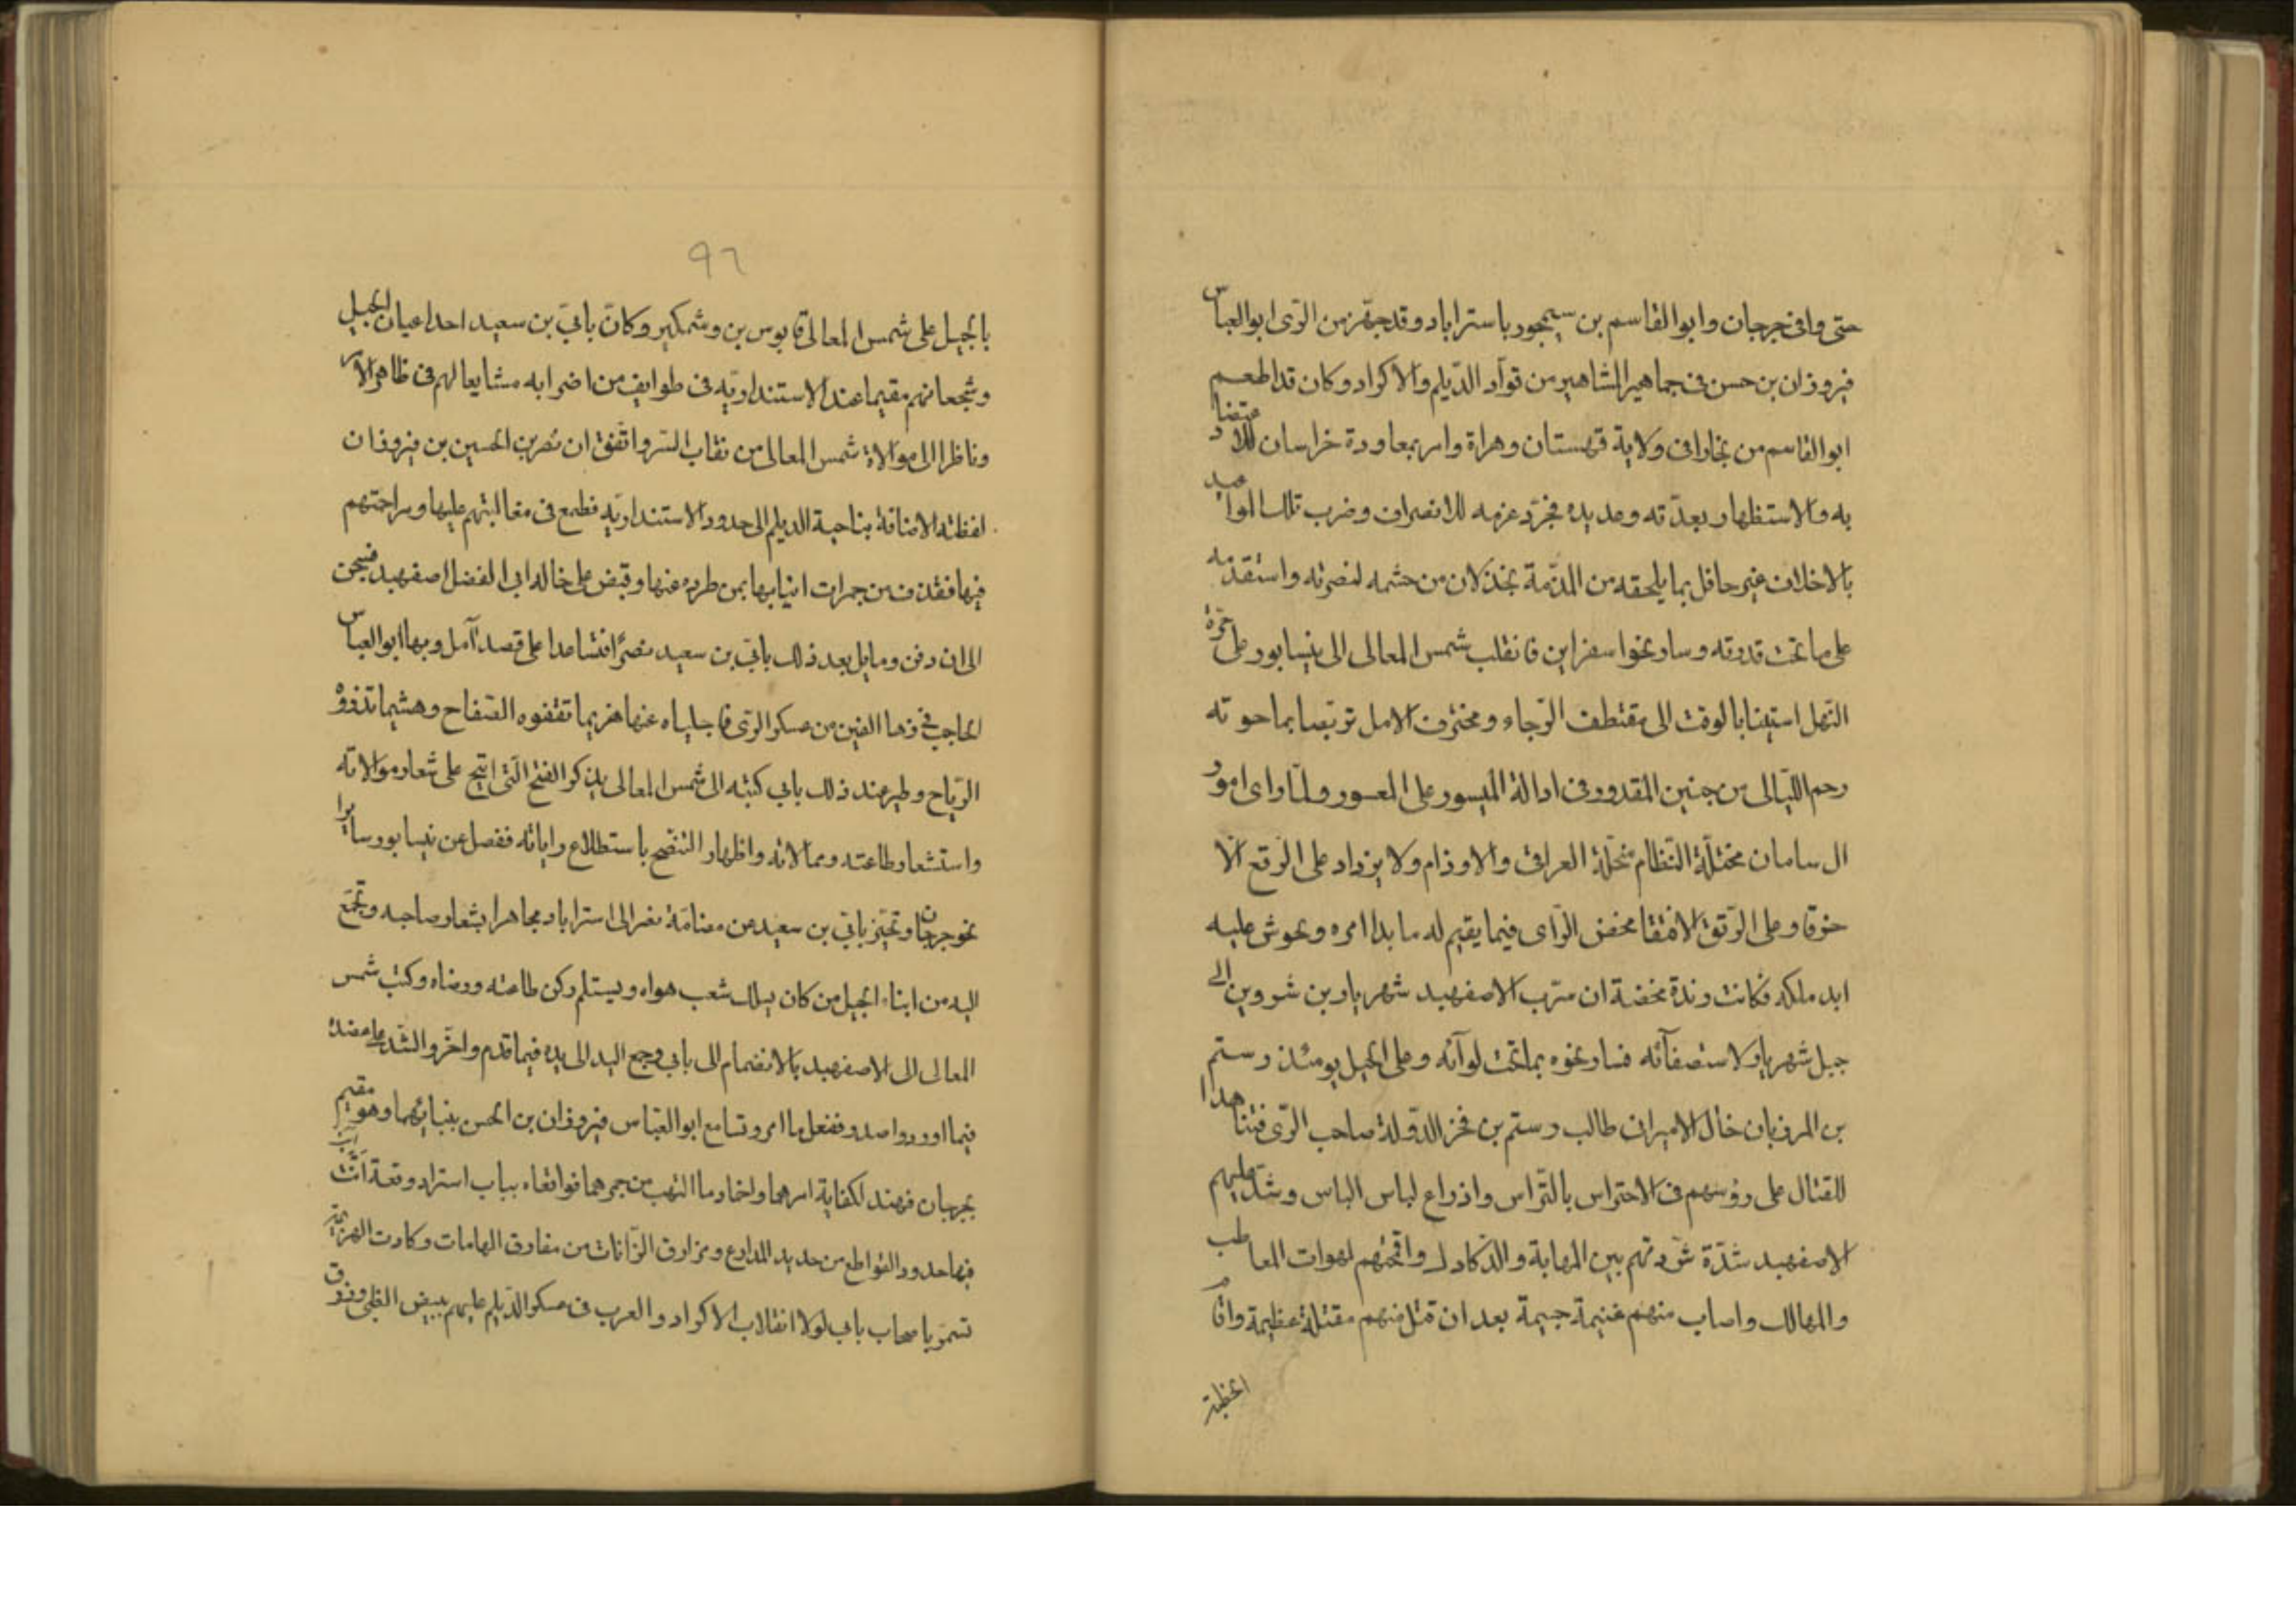 حتى وافى جرجان وابو القاسم بن سيمجور باستراباد وقد جهّز من الرّى ابو العباس
فيروزان بن حسن فى جماهير المشاهير من قوّاد الديلم والاكراد وكان قد اطعم
ابو القاسم من بخارا فى ولاية قهستان وهراة وامر بمعاودة خراسان للاعتضاد
به والاستظهار بعدّته وعديده فجرّد عزمه للانصراف وضرب تلك المواعيد
بالاخلاف غير حافل بما يلحقه من المذمّة بخذلان من حشمه لنصرته واستقدمه
على ما تحت قدرته وسار نحو اسفراين فانقلب شمس المعالى الى نيسابور على
النهل استيفا بالوقت الى مقتطف الرّجاء ومخترف الامل تربّصا بما حوته
رحم الليالى من جنين المقدور فى ادالة الميسور على المعسور ولمّا راى امور
ال سامان مختلّة النظام منحلّة العراقى والاوذام ولا يزداد على الرّقع الّا
خرقا وعلى الرّتق الا فتقا مخض الرّاى فيما يقيم له ما بدا امره ويحوش عليه
ابد ملكه فكانت زبدة مخضه ان سرّب الاصفهبد شهريار بن شروين الى
جبل شهريار لاستصفآئه فسار نحوه بما تحت لوآئه وعلى الجبل يومئذ رستم
بن المرزبان خال الامير ابى طالب رستم بن فخر الدّولة صاحب الرّى فتناهدا
للقتال على رؤسهم فى الاحتراس بالتّراس واذراع لباس الباس وشدّ عليهم
الاصفهبد شدّة شرّدتهم بين المهابة والدّكادك واقحمتهم لهوات المعاطب
والمهالك واصاب منهم غنيمة جسيمة بعد ان قتل منهم مقتلة عظيمة واقام
الخطبة
٩٦
بالجبل على شمس المعالى قابوس بن وشمكير وكان باتى بن سعيد احد اعيان الجيل
وشجعانهم مقيما عند الاستنداريّه فى طوايف من اضرابه مشايعا لهم فى ظاهر الامر
وناظرا الى موالاة شمس المعالى من نقاب السّر واتّفق ان نصر بن الحسين بن فيروزان
لفظته الاضاقة بناحية الديلم الى حدود الاستنداريّه فطمع فى مغالبتهم عليها ومزاحمتهم
فيها فقذف من جمرات انيابها بمن طرده عنها وقبض على خاله ابى الفضل اصفهبد فسجن
الى ان دفن ومايل بعد ذلك باتى بن سعيد نصرًا فتساعدا على قصد آمل وبها ابو العباس
الحاجب فى زها الفين من عسكر الرّى فاجلياه عنها هزيما تقفوه الصّفاح وهشيما تذروه
الرّياح وطيّر عند ذلك باتى كتبه الى شمس المعالى بذكر الفتح الّذى اتيح على شعار موالاته
واستشعار طاعته وممالاته واظهار التنصّح باستطلاع راياته ففصل عن نيسابور سايرا
نحو جرجان وتحيّز باتى بن سعيد من مضامّة نصر الى استراباد مجاهرا بشعار صاحبه وتجمّع
اليه من ابناء الجيل من كان يسلك شعب هواه ويستلم ركن طاعته ورضاه وكتب شمس
المعالى الى الاصفهبد بالانضمام الى باتى وجمع اليد الى يده فيما قدم واخّر والشّد على عضده
فيما اورد واصدر ففعل ما امر وتسامع ابو العباس فيروزان بن الحسن بنبائهما وهو مقيم
بجرجان فنهد لكفاية امرهما واخماد ما التهب من جمرهما فواقعاه بباب استراباد وقعة اثّت
فيها حدود القواطع من حديد المدارع ومزاريق الزّانات من مفارق الهامات وكادت الهزيمة
تستمرّ باصحاب باتى لولا انقلاب الاكراد والعرب فى عسكر الديلم عليهم ببيض الظبى وزرق